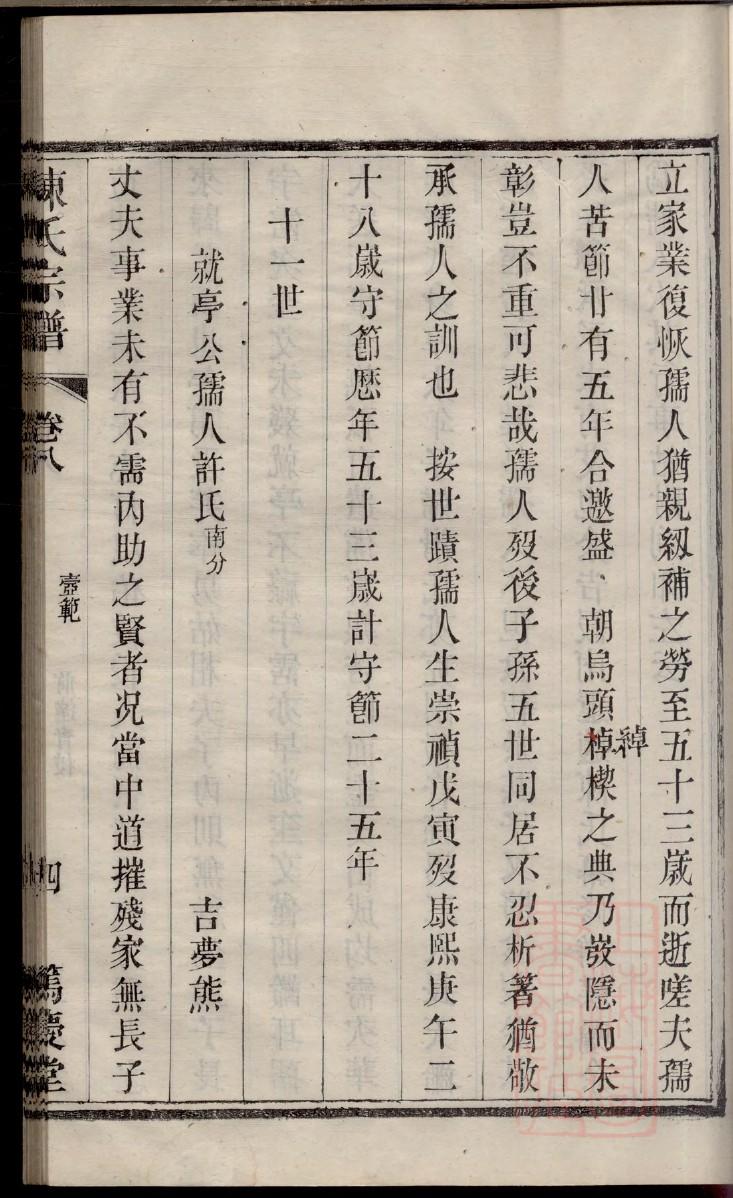 立家業復恢孺人猶親紉補之勞至五十三歲而逝嗟夫孺
人苦節廿有五年合邀盛朝烏頭棹楔之典乃敱隱而未
綽
彰豈不重可悲哉孺人歿後子孫五世同居不忍析著猶敬
承孺人之訓也　按世蹟孺人生崇禎戊寅歿康熙庚午二
十八歲守節歷年五十三歲計守節二十五年
十一世
就亭公孺人許氏南分　吉夢熊
丈夫事業未有不需內助之賢者况當中道摧殘家無長子
陳氏宗譜　卷八　壼範　四　篤慶堂